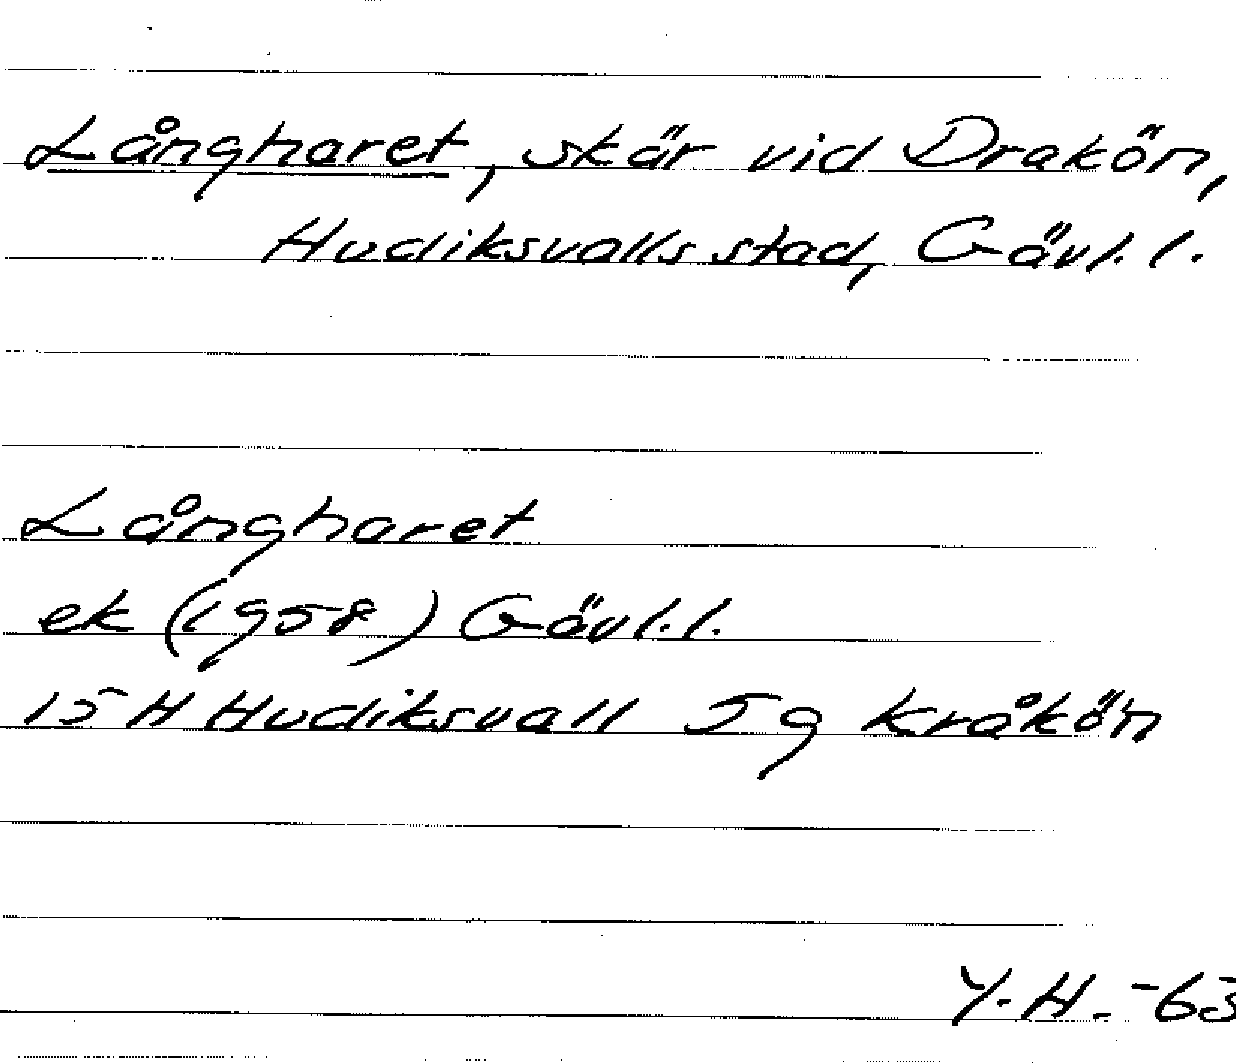 Långharet, skär vid Drakön,
Hudiksvalls stad, Gävl. l.
Långharet
ek (1958) Gävl. l.
15 H Hudiksvall 5g Kråkön
Y. H. -63